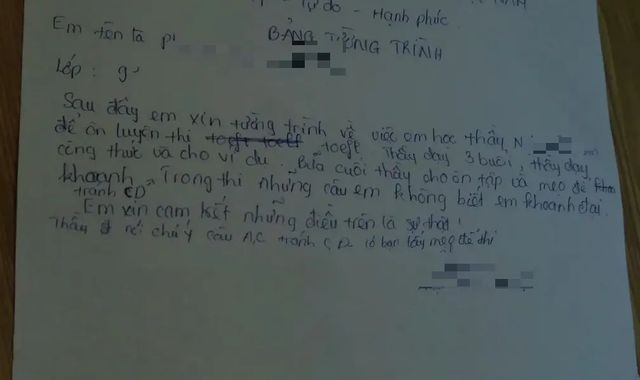 Tự do - Hạnh phúc
BẢNG TƯỜNG TRÌNH
Em tên là p
Lớp: 9
Sau đây em xin tường trình về việc em học thầy N
để ôn luyện thi toefl. Thầy dạy 3 buổi, thầy dạy
công thức và cho ví dụ. Buổi cuối thầy cho ôn tập và mẹo để
khoanh. Trong thi những câu em không biết em khoanh đại.
tránh CD
Em xin cam kết những điều trên là sự thật!
Thầy nói chú ý câu A,C tránh có bạn lấy mẹo để thi